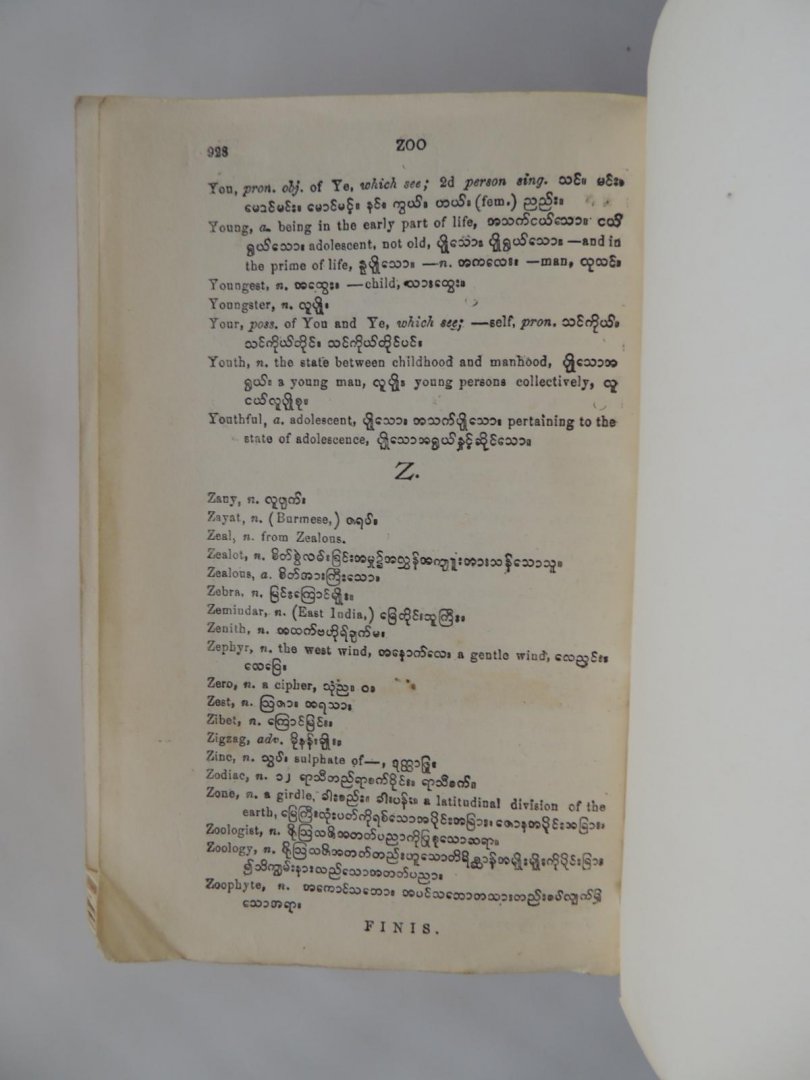 928 ZOO
You, pron. obj. of Ye, which see; 2d person sing. သင်။ မင်း။
မောင်မင်း။ မောင်မင့်။ နင်။ ကွယ်။ ဟယ်။ (fem.) ညည်း။
Young, a. being in the early part of life, အသက်ငယ်သော။ ငယ်
ရွယ်သော။ adolescent, not old, ပျိုသော။ ပျိုရွယ်သော။ —and in
the prime of life, နုပျိုသော။ —n. အကလေး။ —man, လုလင်။
Youngest, n. အထွေး။ —child, သားထွေး။
Youngster, n. လူပျို။
Your, poss. of You and Ye, which see; —self, pron. သင်ကိုယ်။
သင်ကိုယ်တိုင်။ သင်ကိုယ်တိုင်ပင်။
Youth, n. the state between childhood and manhood, ပျိုသောအ
ရွယ်။ a young man, လူပျို။ young persons collectively, လူ
ငယ်လူပျိုစု။
Youthful, a. adolescent, ပျိုသော။ အသက်ပျိုသော။ pertaining to the
state of adolescence, ပျိုသောအရွယ်နှင့်ဆိုင်သော။
Z.
Zany, n. လူပျက်။
Zayat, n. (Burmese,) ဇရပ်။
Zeal, n. from Zealous.
Zealot, n. စိတ်စွဲလမ်းခြင်းအမှု၌အလွန်အကျူးအားသန်သောသူ။
Zealous, a. စိတ်အားကြီးသော။
Zebra, n. မြင်းကြောင်မျိုး။
Zemindar, n. (East India,) မြေတိုင်းသူကြီး။
Zenith, n. အထက်ဗဟိုရ်ချက်မ။
Zephyr, n. the west wind, အနောက်လေ။ a gentle wind, လေညှင်း။
လေပြေ။
Zero, n. a cipher, သုံည။ ၀။
Zest, n. ဩဇာ။ အရသာ။
Zibet, n. ကြောင်မြင်း။
Zigzag, adv.
Zinc, n. သွပ်။ sulphate of—,
Zodiac, n. ၁၂ ရာသီတည်ရာစက်ဝိုင်း။ ရာသီစက်။
Zone, n. a girdle, ခါးစည်း။ ခါးပန်း။ a latitudinal division of the
earth, မြေကြီးလုံးပတ်ကိုရစ်သောအပိုင်းအခြား။ ဇောနအပိုင်းအခြား။
Zoologist, n. ဇိုဩလဇိအတတ်ပညာကိုပြုစုသောဆရာ။
Zoology, n. ဇိုဩလဇိအတတ်တည်းဟူသောတိရိစ္ဆာန်အမျိုးမျိုးကိုပိုင်းခြား
၍သိကျွမ်းနားလည်သောအတတ်ပညာ။
Zoophyte, n. အကောင်သဘော။ အပင်သဘောတသားတည်းစပ်လျက်ရှိ
သောအရာ။
FINIS.